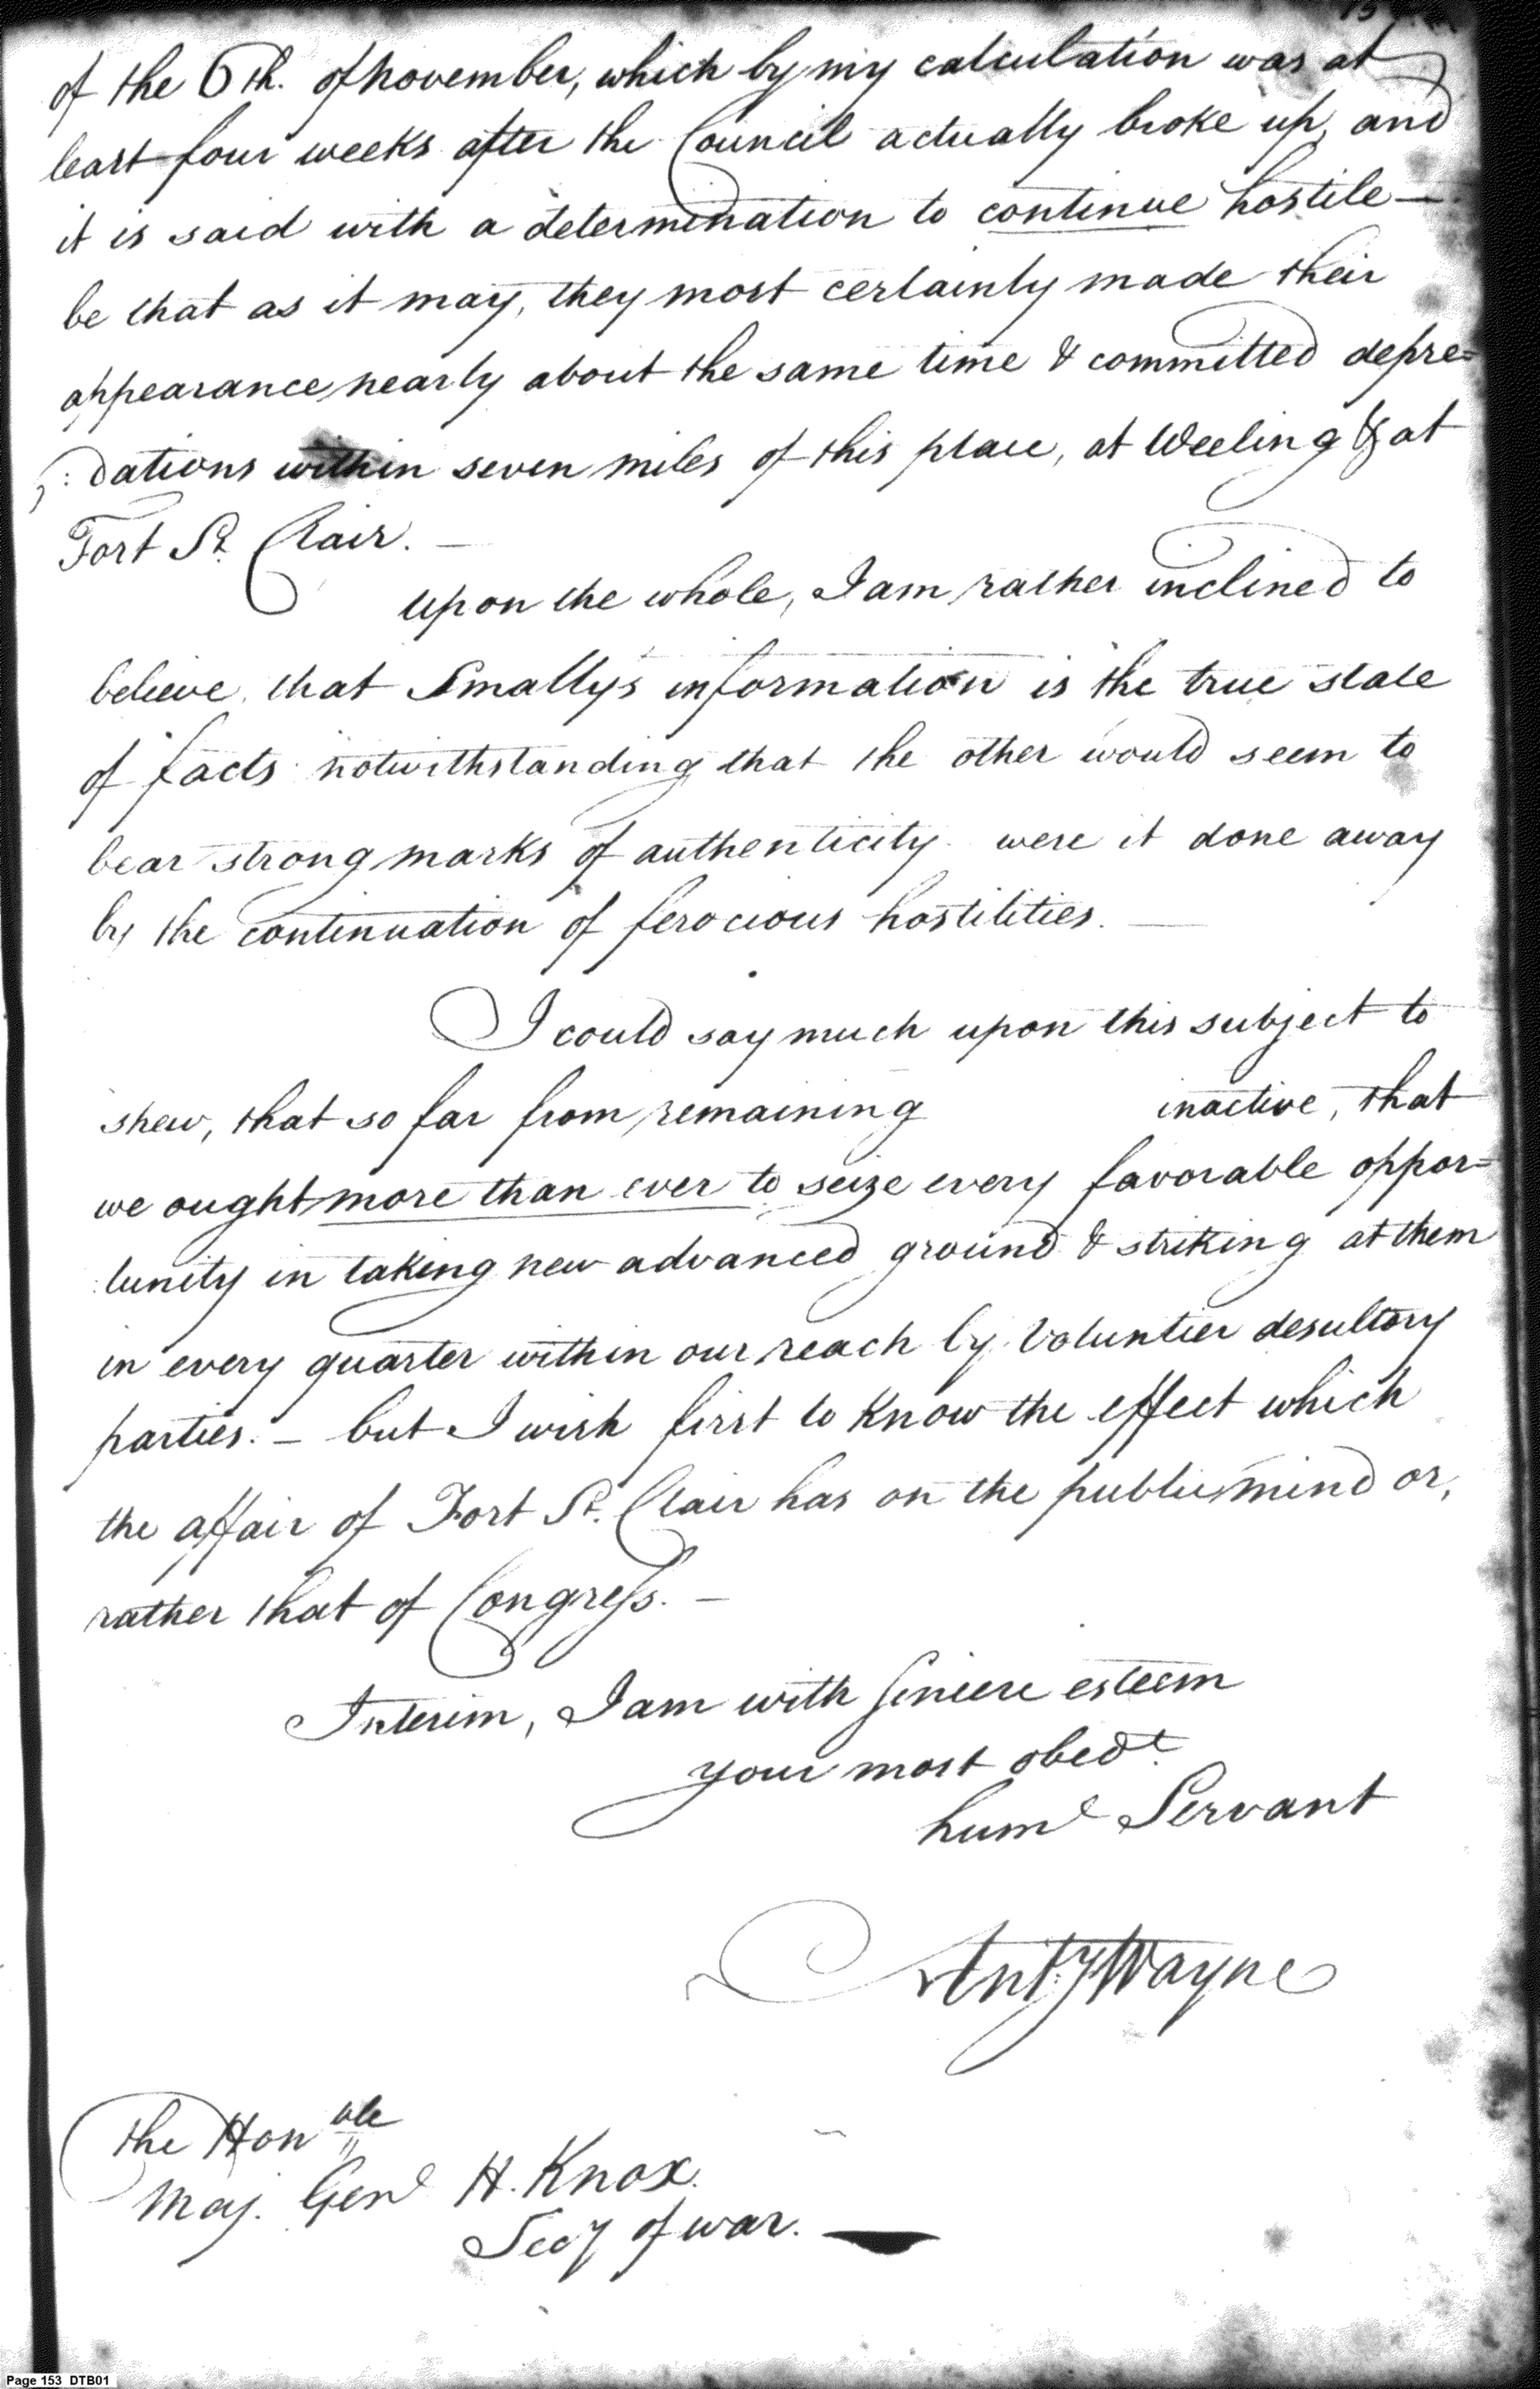 of the 6th. of november, which by my calculation was at
least four weeks after the Council actually broke up, and
it is said with a determination to continue hostile —
be that as it may, they most certainly made their
appearance nearly about the same time & committed depre=
:dations within seven miles of this place, at Weeling & at
Fort St. Clair. —
upon the whole, I am rather inclined to
believe, that Smally's information is the true state
of facts notwithstanding that the other would seem to
bear strong marks of authenticity. were it done away
by the continuation of ferocious hostilities. —
I could say much upon this subject to
shew, that so far from remaining inactive, that
we ought more than ever to seize every favorable oppor=
:tunity in taking new advanced ground & striking at them
in every quarter within our reach by Voluntier desultory
parties. — but I wish first to know the effect which
the affair of Fort St. Clair has on the public mind or,
rather that of Congress. —
Interim, I am with sincere esteem
your most obedt.
huml Servant
Anty Wayne
The Honble
Maj. Genl H. Knox.
Secy of war.
Page 153 DTB01